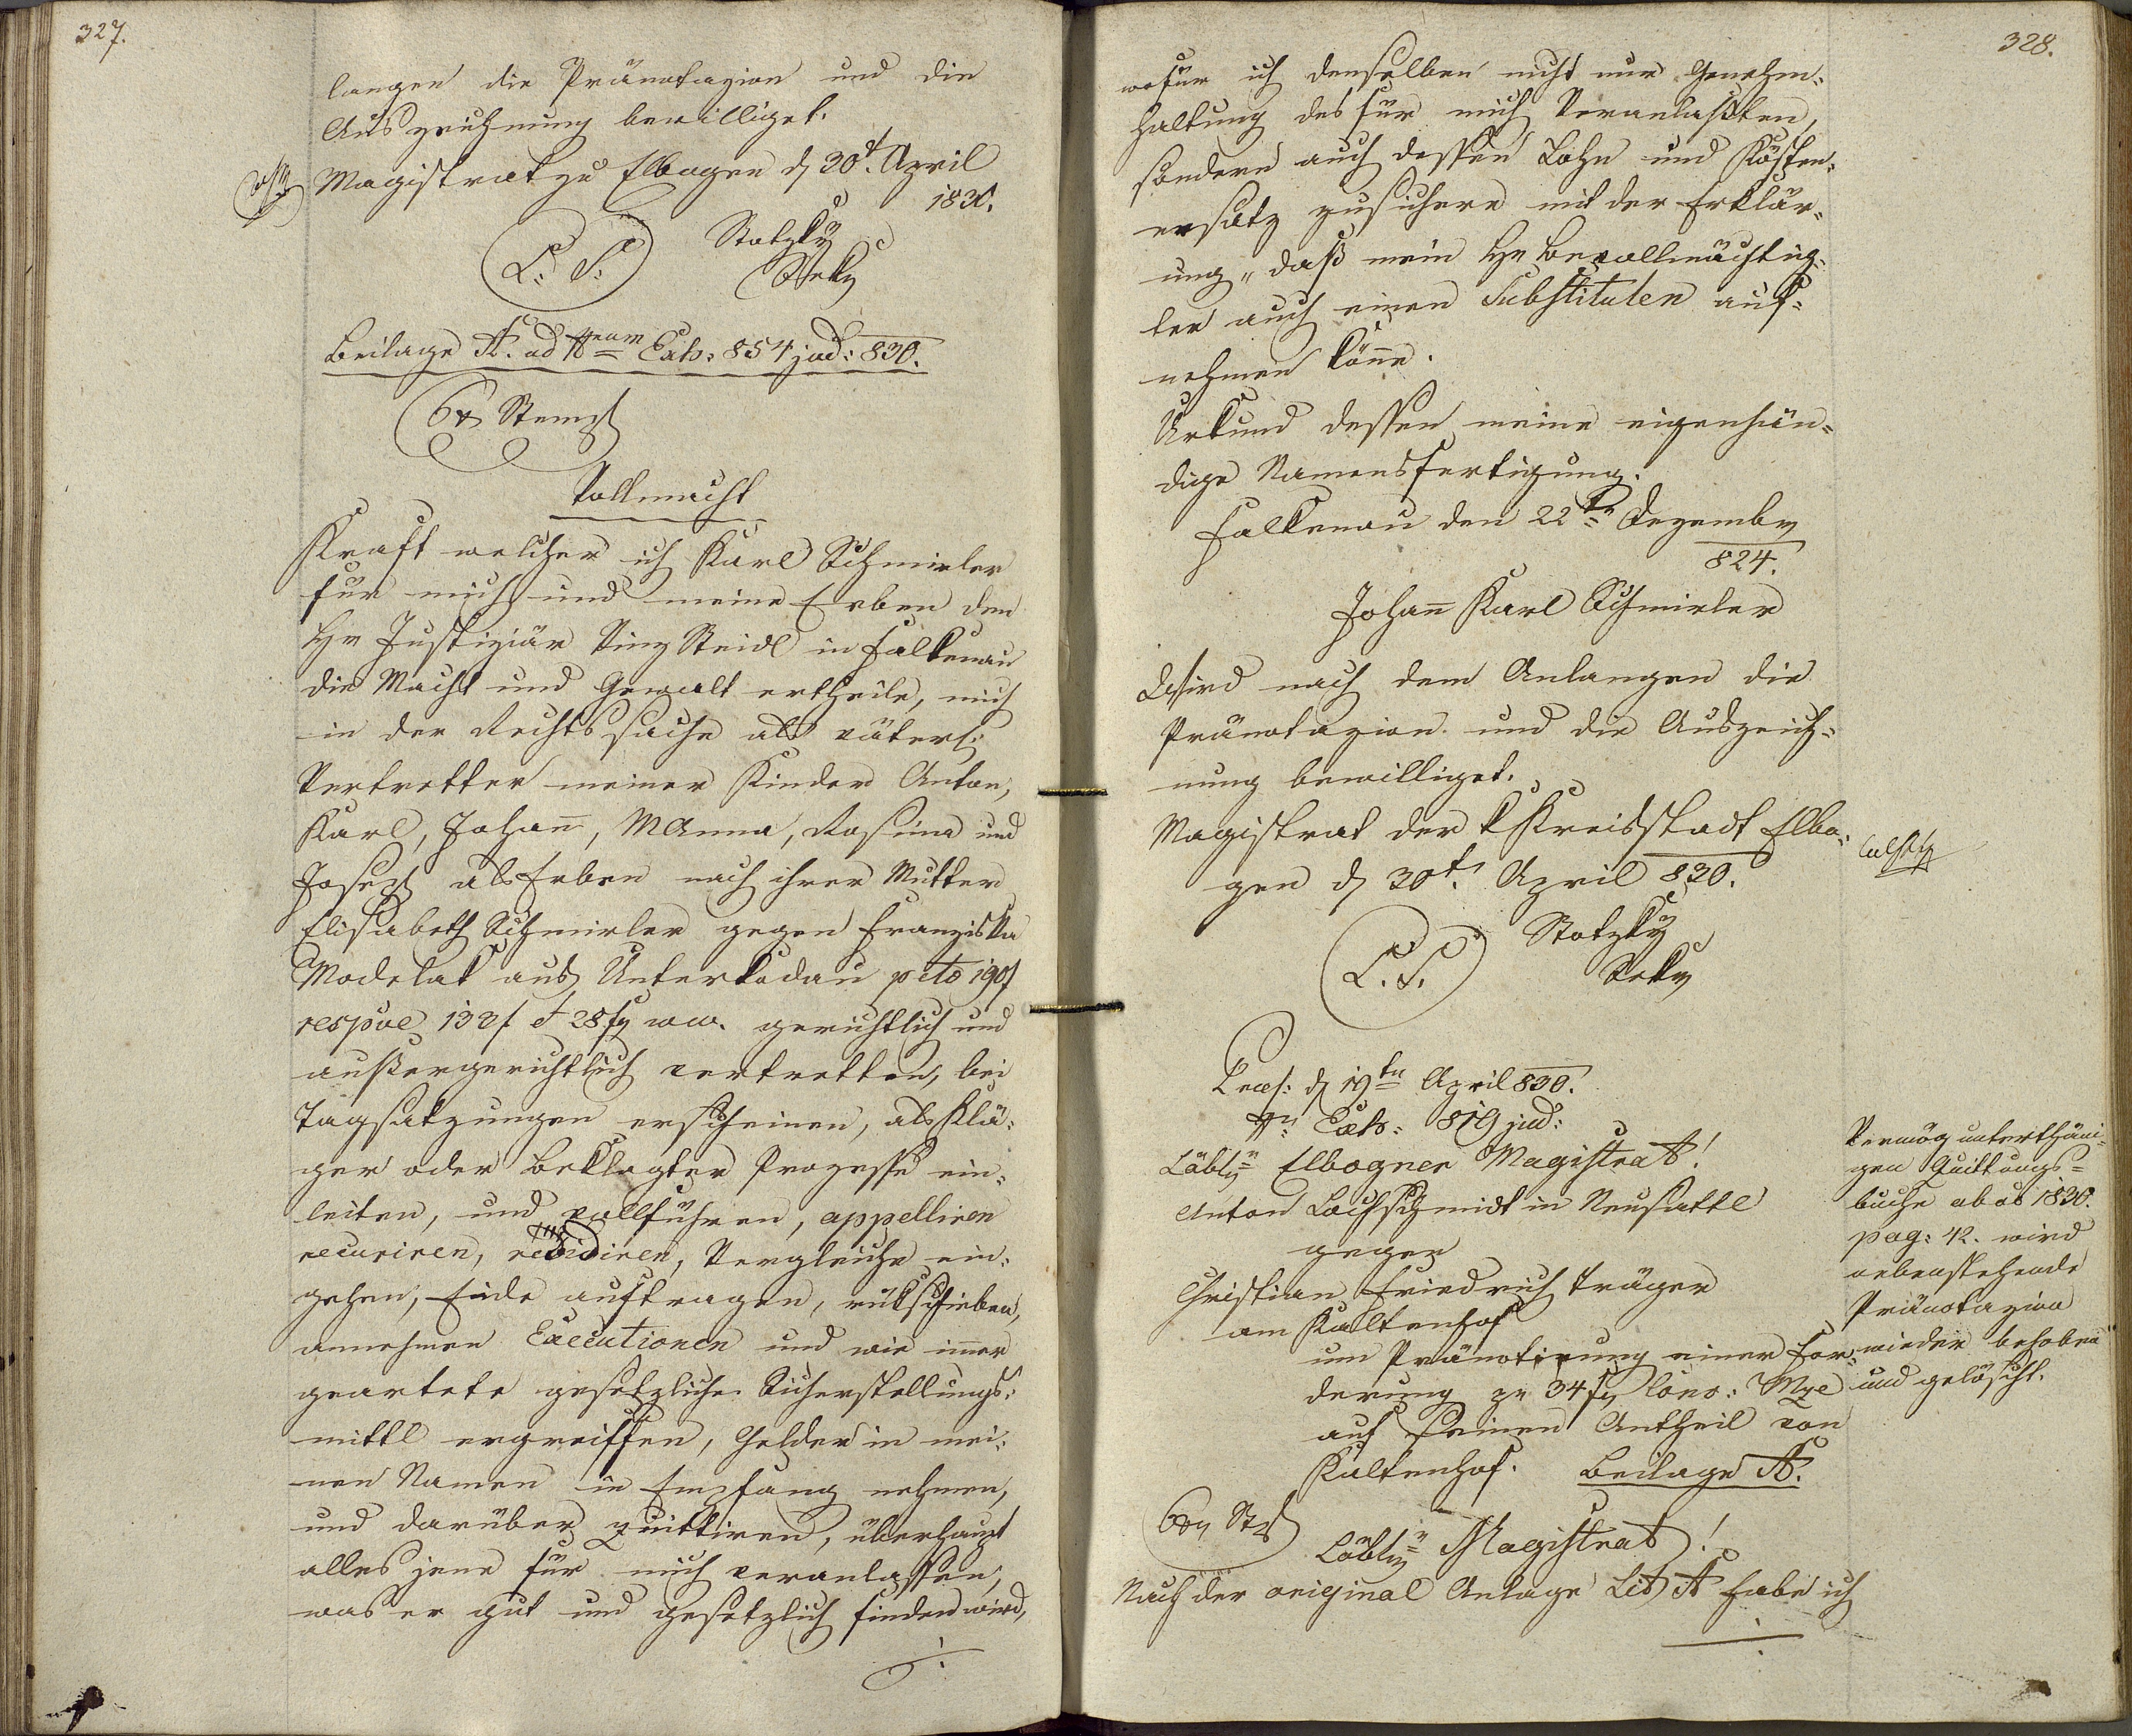 327.
langen die Pränotazion und die
Auszeichnung bewilliget.
Magistrat zu Elbogen d 30t. April
1830.
L. S.
Stotzky
Sekr
Beilage A. ad Nrum Exh: 854 jud: 830.
6 x Stempl
Vollmacht
Kraft welcher ich Karl Schmieler
für mich und meine Erben den
Hr Justiziär Vinz Reidl in Falkenau
die Macht und Gewalt ertheile, mich
in der Rechtssache als väterl:
Vertretter meiner Kinder Anton,
Karl, Johan̄, MAnna, Rosina und
Josepf als Erben nach ihrer Mutter
Elisabeth Schmieler gegen Franziska
Modelak aus Unterkodau pcto 190f
respve 132f et 28 f ww. gerichtlich und
außergerichtlich vertretten, bei
Tagsatzungen erscheinen, als Klä:
ger oder Beklagter Prozesse ein:
leiten, und vollführen, appelliren
recuriren, revidiren, Vergleiche ein:
gehen, Eide auftragen, rükschieben,
annehmen Executionen und wie im̄er
geartete gesetzliche Sicherstellungs:
mittl ergreiffen, Gelder in mei:
nen Namen in Empfang nehmen,
und darüber quittiren, überhaupt
alles jene für mich veranlassen,
was er gut und gesetzlich finden wird,
./.
328.
wofür ich denselben nicht nur Genehm:
haltung des für mich Veranlaßten,
sondern auch dessen Lohn und Kösten:
ersatz zusichere mit der Erklär:
ung, daß mein Hr Bevollmächtig:
ter auch einen Substituten auf:
nehmen kön̄e.
Urkund dessen meine eigenhän:
dige Namensfertigung.
Falkenau den 22tn Dezember
824.
Johan̄ Karl Schmieler
Wird nach dem Anlangen die
Pränotazion und die Auszeich:
nung bewilliget.
Magistrat der k Kreisstadt Elbo:
gen d 30t. April 830.
L. S.
Stotzky
Sekr
Præs: d 19tn April 830.
Nr Exh: 819 jud:
Löblr Elbogner Magistrat!
Anton Lochschmidt in Neusattl
gegen
Christian Friedrich Träger
am Kaltenhof
um Pränotirung einer For:
derung zu 34 f Conv: Mze
auf seinen Antheil von
Kaltenhof. Beilage A.
Vermög unterthäni:
gen Quittungs:
buche ab ao 1830.
pag: 42. wird
nebenstehende
Pränotazion
wieder behoben
und gelöscht.
6 x St
Löblr Magistrat!
Nach der original Anlage Lit A habe ich
./.